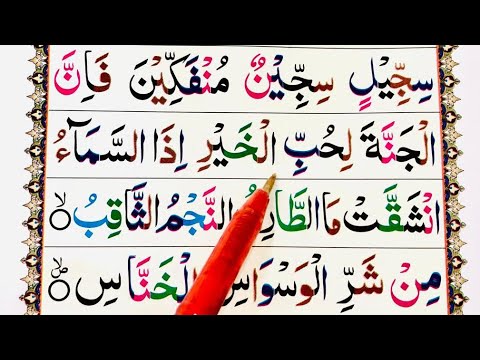 سِجِّيْلٍ سِجِّيْنٌ مُنْفَكِّيْنَ فَاِنَّ
الْجَنَّةَ لِحُبِّ الْخَيْرِ اِذَا السَّمَآءُ
انْشَقَّتْ مَا الطَّارِقُ النَّجْمُ الثَّاقِبُ
مِنْ شَرِّ الْوَسْوَاسِ الْخَنَّاسِ